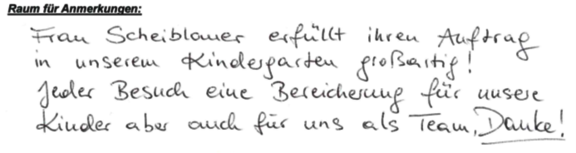 Raum für Anmerkungen:
Frau Scheiblauer erfüllt ihren Auftrag
in unserem Kindergarten großartig!
Jeder Besuch eine Bereicherung für unsere
Kinder aber auch für uns als Team, Danke!